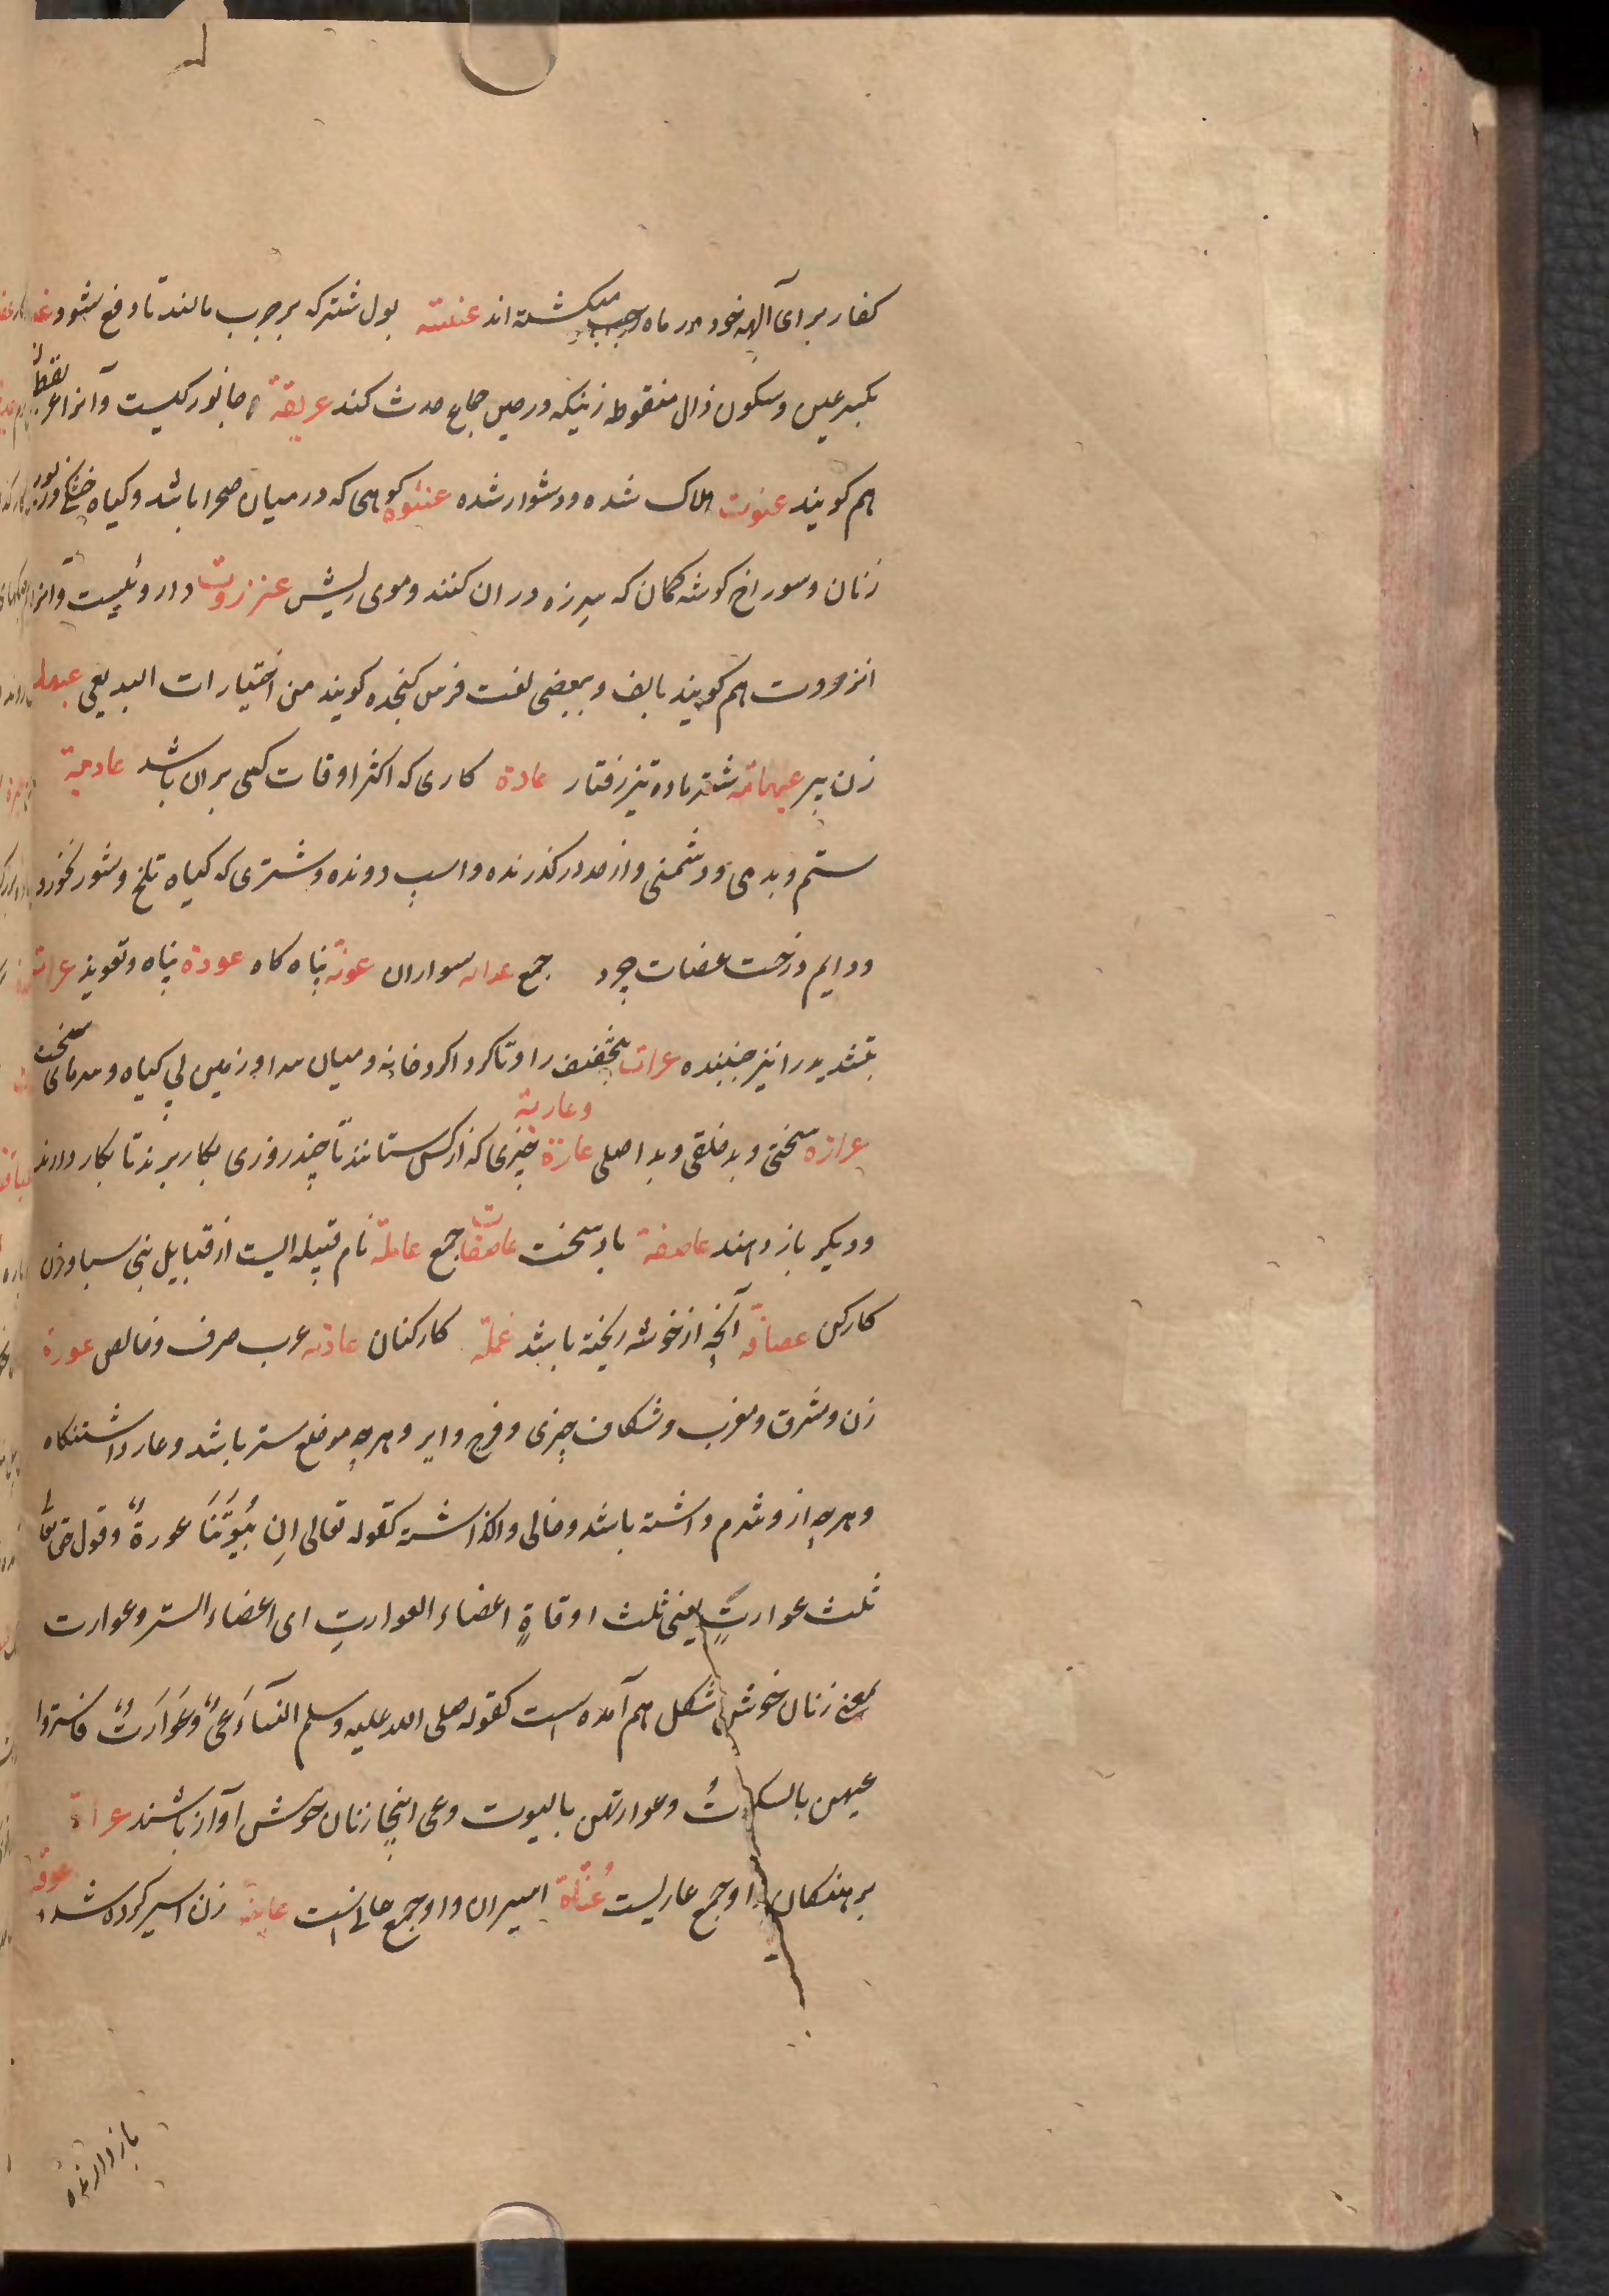 کفار برای آلهه خود در ماه رجب میکشته اند عنیته بول شتر که بر جرب مالند تا دفع شود
بکسر عین و سکون ذال منقوطه زنیکه در حین جماع حدث کند عریقة جانورکیست و آنرا
هم کویند عنوت هلاک شده و دشوار شده عنثوه کوهی که در میان صحرا باشد و کیاه خشک
زنان و سوراخ کوشه کمان که سر زه در ان کنند و موی ریش عنزروت داروئیست و انرا
انزروت هم کویند بالف و ببعضی لغت فرس کنجده کویند من اختیارات البدیعی عیهله
زن پیر عیهامه شتر ماده تیز رفتار عادة کاری که اکثر اوقات کسی بران باشد عادیة
ستم و بدی و دشمنی و از حد در کذرنده و اسپ دونده و شتری که کیاه تلخ و شور نخورد
و دایم درخت عضات چرد جمع عداه سواران عوذة پناه کاه عوذة پناه و تعویذ عرات
بتشدید را نیز جنبنده عرات بتخفیف را و تا کرداکرد خانه و میان سرا و زمین بی کیاه و سرمای سخت
عرازه سختی و بدخلقی و بد اصلی عارة وعاریة چیزی که از کس ستانند تا چند روزی بکار برند تا بکار دارند
و دیکر باز دهند عاصفة باد سخت عاصفات جمع عاملة نام قبیله ایست از قبایل بنی سبا و زن
کارکن عصافه آنچه از خوشه ریخته باشد عملة کارکنان عاربه عرب صرف و خالص عورة
زن و مشرق و مغرب و شکاف چیزی و فرج و ایر و هرچه موضع ستر باشد و عار داشتنکاه
و هرچه از و شرم داشته باشد و خالی و اکذاشته کقوله تعالی ان بُیُوتَنَا عورةٌ و قول حق تعا
ثلث عوراتٍ یعنی ثلث اوقاةٍ اعضاء العوارتِ ای اعضاء الستر و عوارت
بمعنی زنان خوش شکل هم آمده است کقوله صلی الله علیه وسلم النسآء عیٌ و عَوَارَتٌ فاستروا
عیهن بالسکوتُ و عوارتهن بالبیوت و عی اینجا زنان خوش آواز باشند عراة
برهنکان او جمع عاریست عُناة اسیران و او جمع عانی است عانیة زن اسیر کرده شده عوقه
باز دارنده